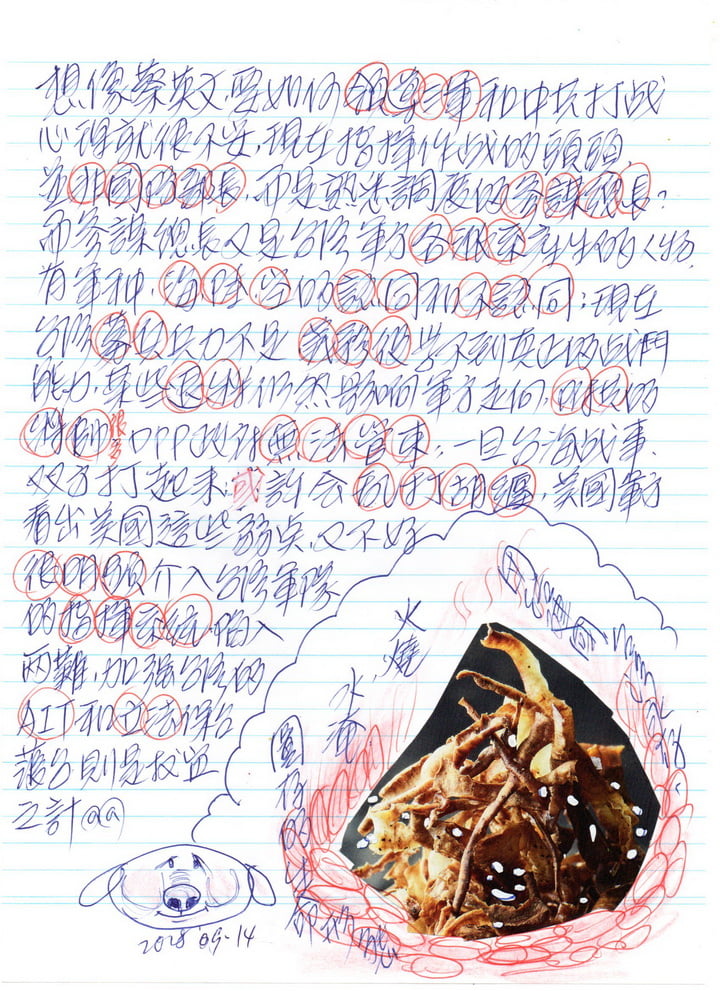 想像蔡英文,要如何領導三軍和中共打战
心得就很不安,現在指揮作战的頭頭,
並非國防部長,而是熟悉調度的參謀總長?
而參謀總長又是台湾軍方各派系产生的人物,
有軍种,海陸空的認同和不認同;現在
台湾募兵兵力不足 義務役学不到真正的战鬥
能力,某些退將仍然影响軍方走向,
將帥很多DPP政府無法管束,一旦台海战事、
双方打起來,或許会亂打胡纏,美國軍方
看出美國這些弱点,又不好
很明顯介入台湾軍隊
的指揮系統,陷入
兩難,加强台湾的
AIT和立法保台
護台則是权宜
之計@@
火燒
水淹
2018 09-14